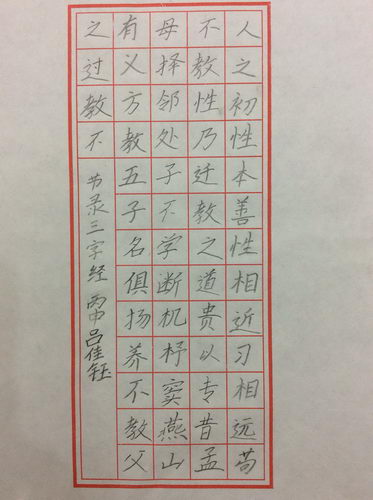 人之初性本善性相近习相远苟
不教性乃迁教之道贵以专昔孟
母择邻处子不学断机杼窦燕山
有义方教五子名俱扬养不教父
之过教不
节录三字经 丙申吕佳钰